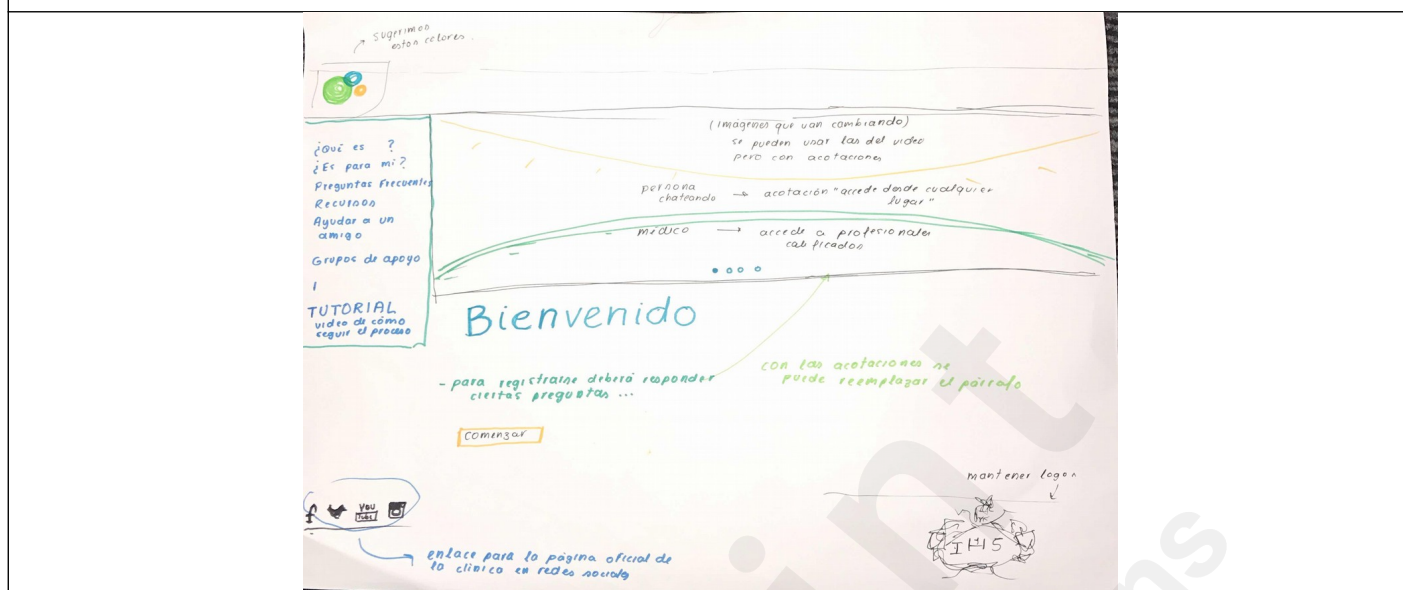 sugerimos
estos colores.
¿Qué es ?
¿Es para mi?
Preguntas Frecuentes
Recursos
Ayudar a un
amigo
Grupos de apoyo
TUTORIAL
video de cómo
seguir el proceso
(imágenes que van cambiando)
se pueden usar las del video
pero con acotaciones
persona
chateando → acotación "accede desde cualquier
lugar"
médico → accede a profesionales
calificados
Bienvenido
- para registrarse deberá responder
ciertas preguntas ...
con las acotaciones se
puede reemplazar el párrafo
comenzar
mantener logos
f You
Tube
IHS
enlace para la página oficial de
la clínica en redes sociales